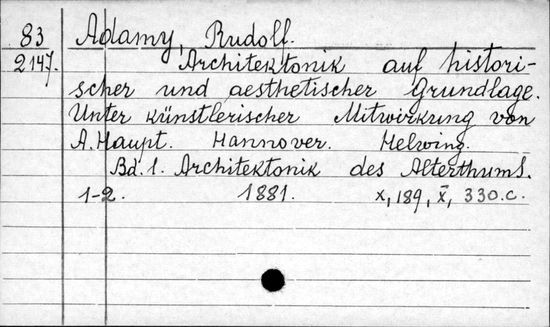 83 Adamy, Rudolf.
2147. Architektonik auf histori-
scher und aesthetischer Grundlage.
Unter künstlerischer Mitwirkung von
A. Haupt. Hannover. Helwing.
Bd. 1. Architektonik des Alterthums.
1-2. 1881. X, 189, X, 330.c.